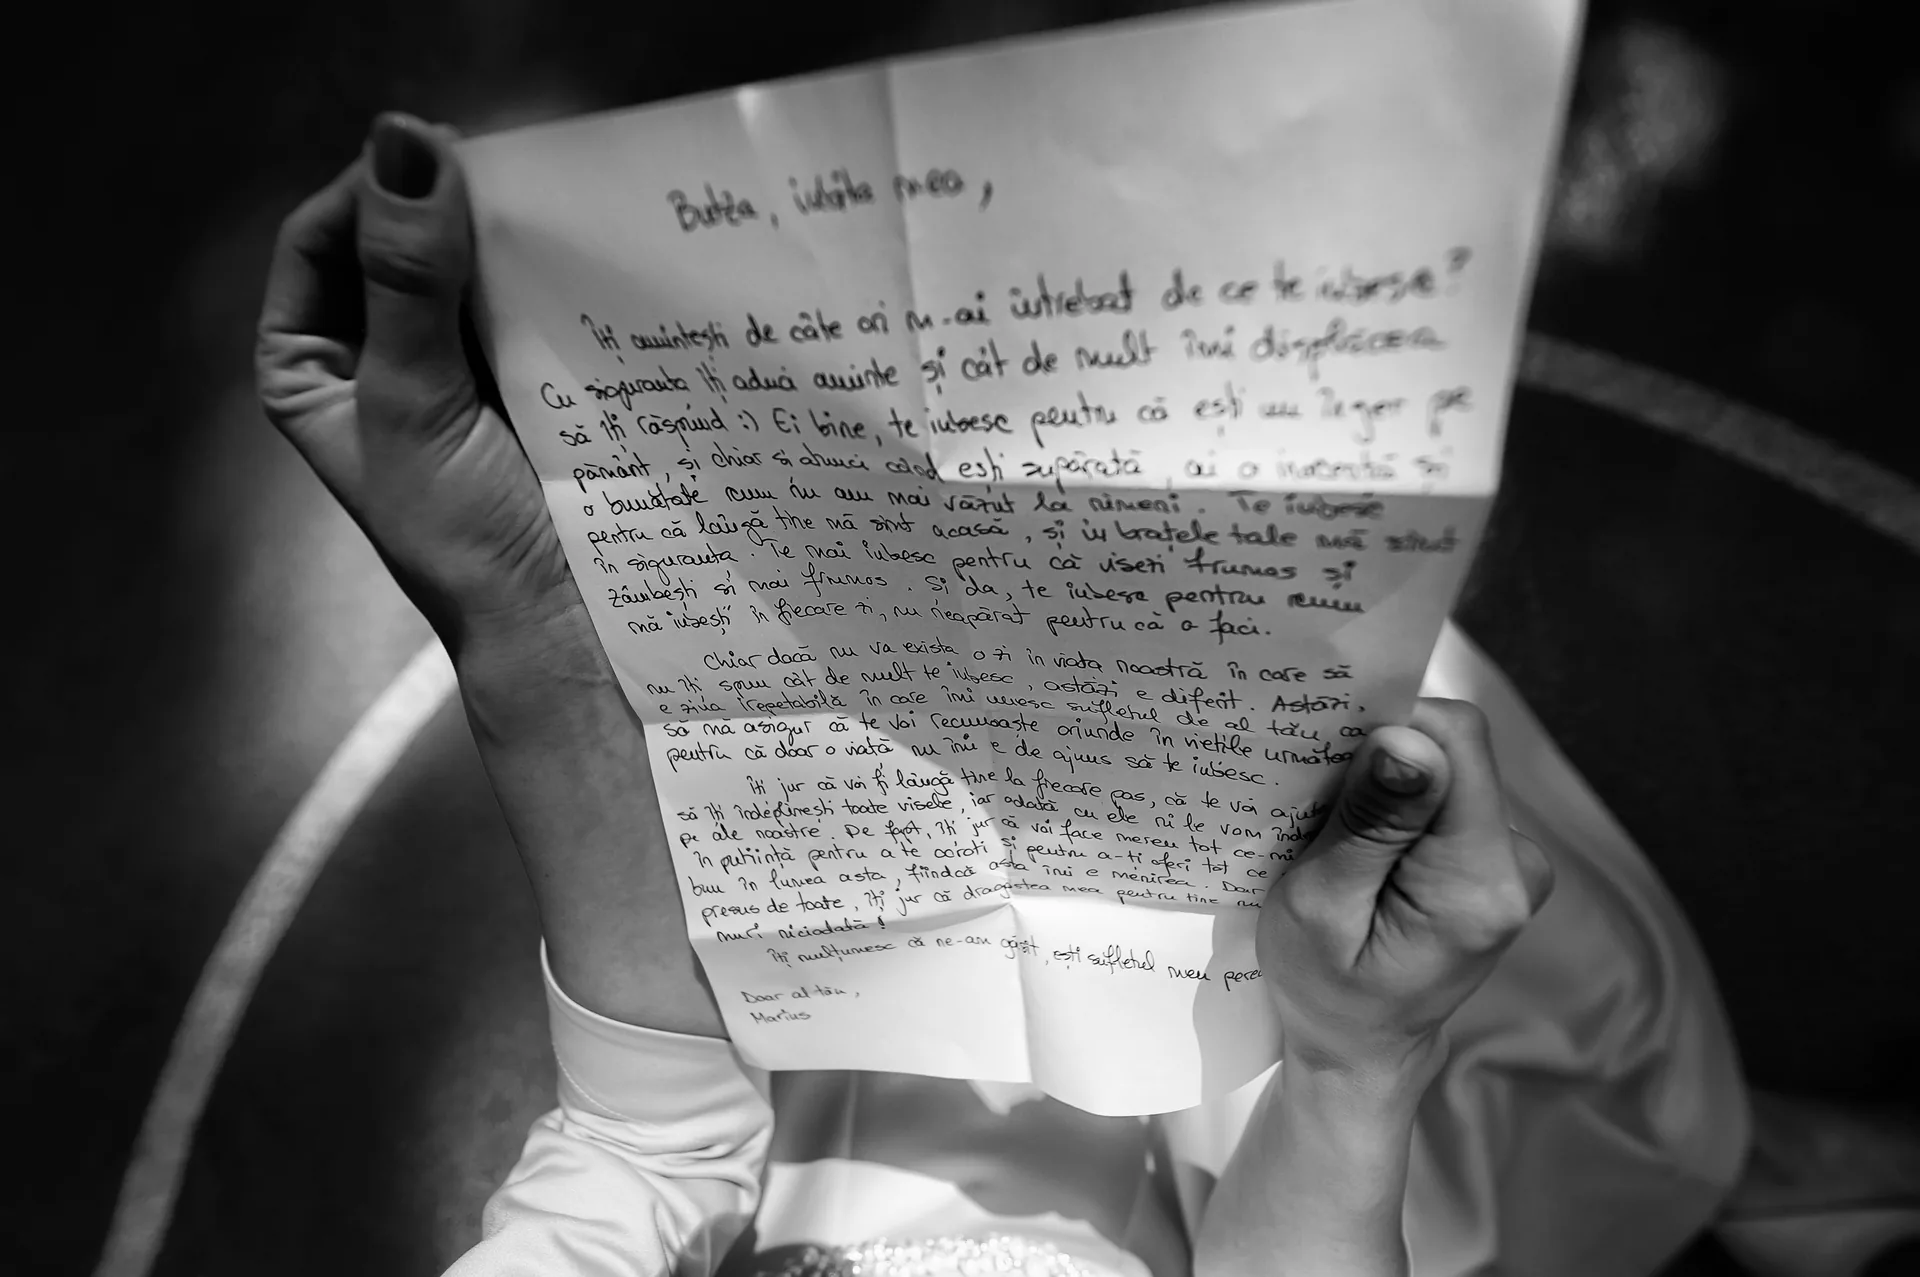 Butza, iubita mea,
Îți amintești de câte ori m-ai întrebat de ce te iubesc?
Cu siguranta îți aduci aminte și cât de mult îmi displăcea
să îți răspund :) Ei bine, te iubesc pentru că ești un înger pe
pământ, și chiar si atunci când ești supărată, ai o inocență și
o bunătate cum nu am mai văzut la nimeni. Te iubesc
pentru că lângă tine mă simt acasă, și în brațele tale mă simt
în siguranta. Te mai iubesc pentru că visezi frumos și
zâmbești și mai frumos. Si da, te iubesc pentru cum
mă iubești în fiecare zi, nu neapărat pentru că o faci.
Chiar dacă nu va exista o zi în viața noastră în care să
nu îți spun cât de mult te iubesc, astăzi e diferit. Astăzi,
e ziua irepetabilă în care îmi unesc sufletul de al tău ca
să mă asigur că te voi recunoaște oriunde în viețile
pentru că doar o viață nu îmi e de ajuns să te iubesc.
Iti jur că voi fi lângă tine la fiecare pas, că te voi
să îți îndeplinești toate visele, iar odată cu ele ni le vom
pe ale noastre. De fapt, îți jur că voi face mereu tot ce-mi
în putiință pentru a te ocroti și pentru a-ti oferi tot ce
bun în lumea asta, fiindcă asta îmi e menirea. Dar
presus de toate, îți jur că dragostea mea pentru tine nu
muri niciodată!
Îți mulțumesc că ne-am găsit, ești sufletul meu
Doar al tău,
Marius